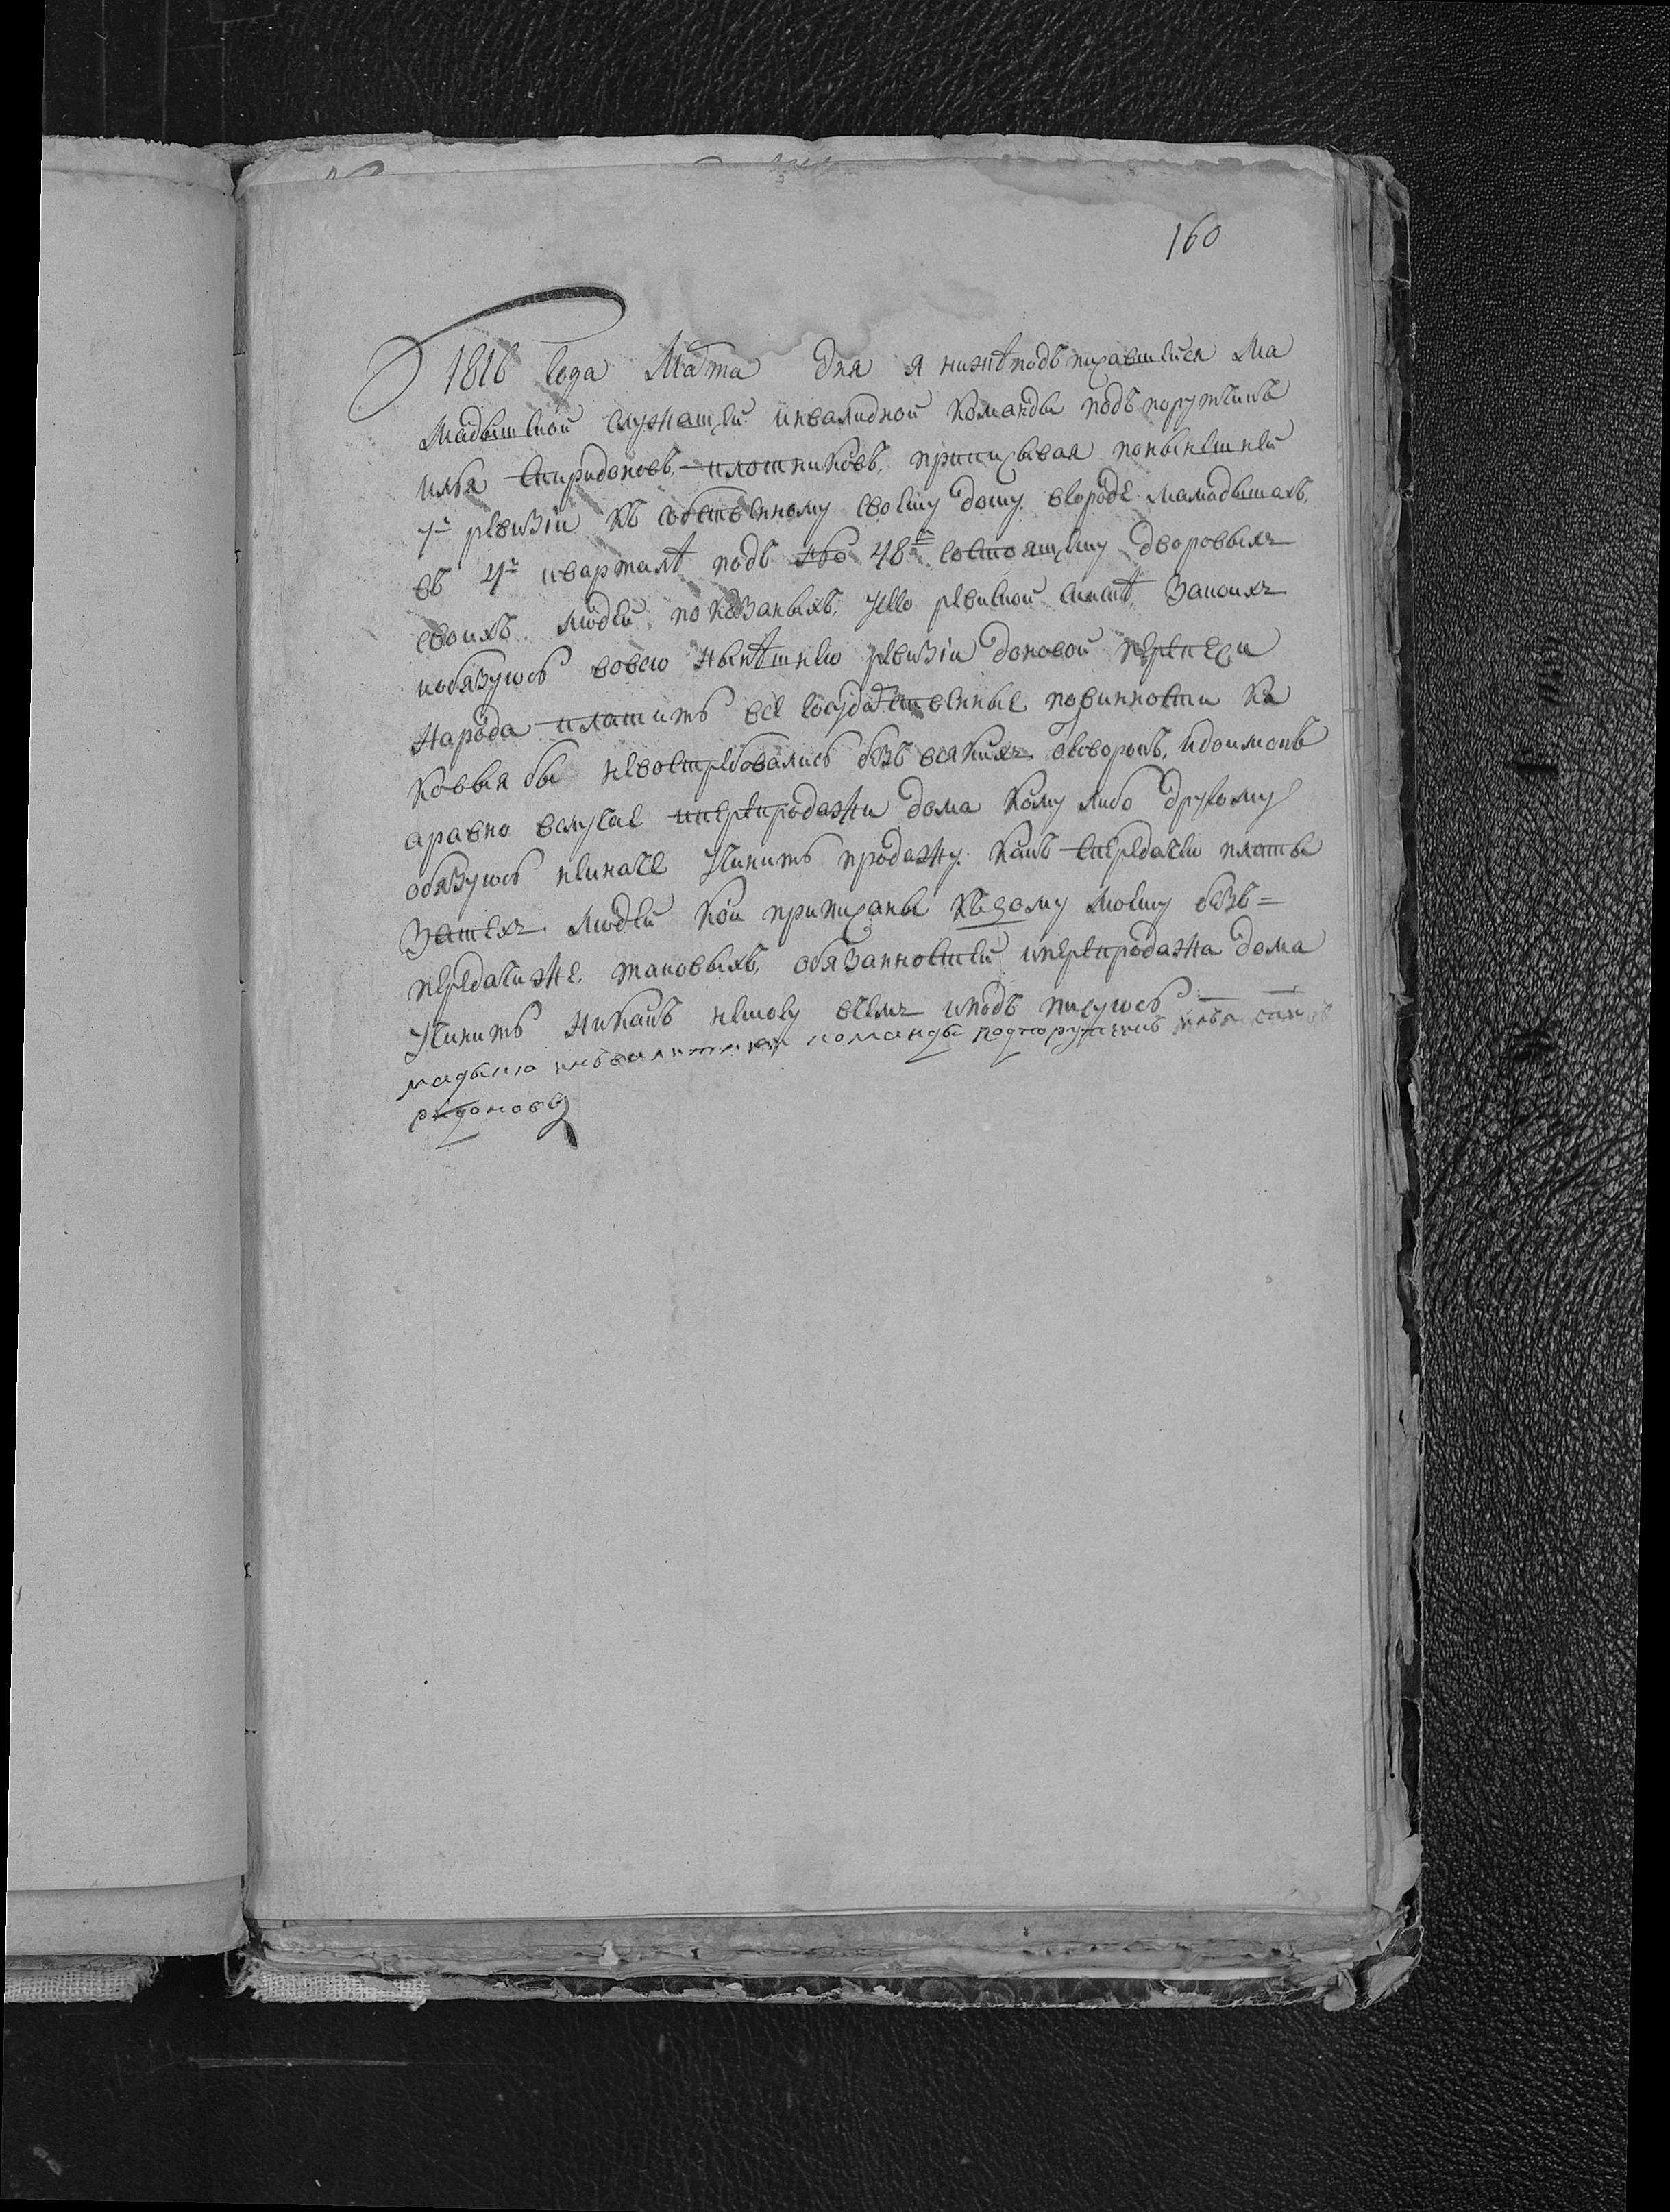 160
1816 года Марта дня я нижѣподъписавшейся Ма
мадышской служащей инвалидной команды подъпорутчикъ
Илья Спиридоновъ, плотниковъ, приписывая понынешней
7й ревизiи къ собственному своему дому, вгороде Мамадышахъ,
въ 4м кварталѣ подъ № 48м состоящему дворовыхъ
своихъ людей, показаныхъ, усего ревиской
иобязуюсь вовсю нынѣшнею ревизiи доновой переписи
народа платить все государственные повинности ка
ковыя бы невостребовались безъ всякихъ оговорокъ, идоимокъ
аравно вслучае иперепродажи дома кому либо другому
обязуюсь неиначе учинить продажу какъ спередачею платы
затехъ людей кои приписаны къдому моему безъ=
передачиже, таковыхъ, обязанностей иперепродажа дома
учинить никакъ немогу всемъ иподъ писуюсь
команды подпорутчикъ
ридоновъ